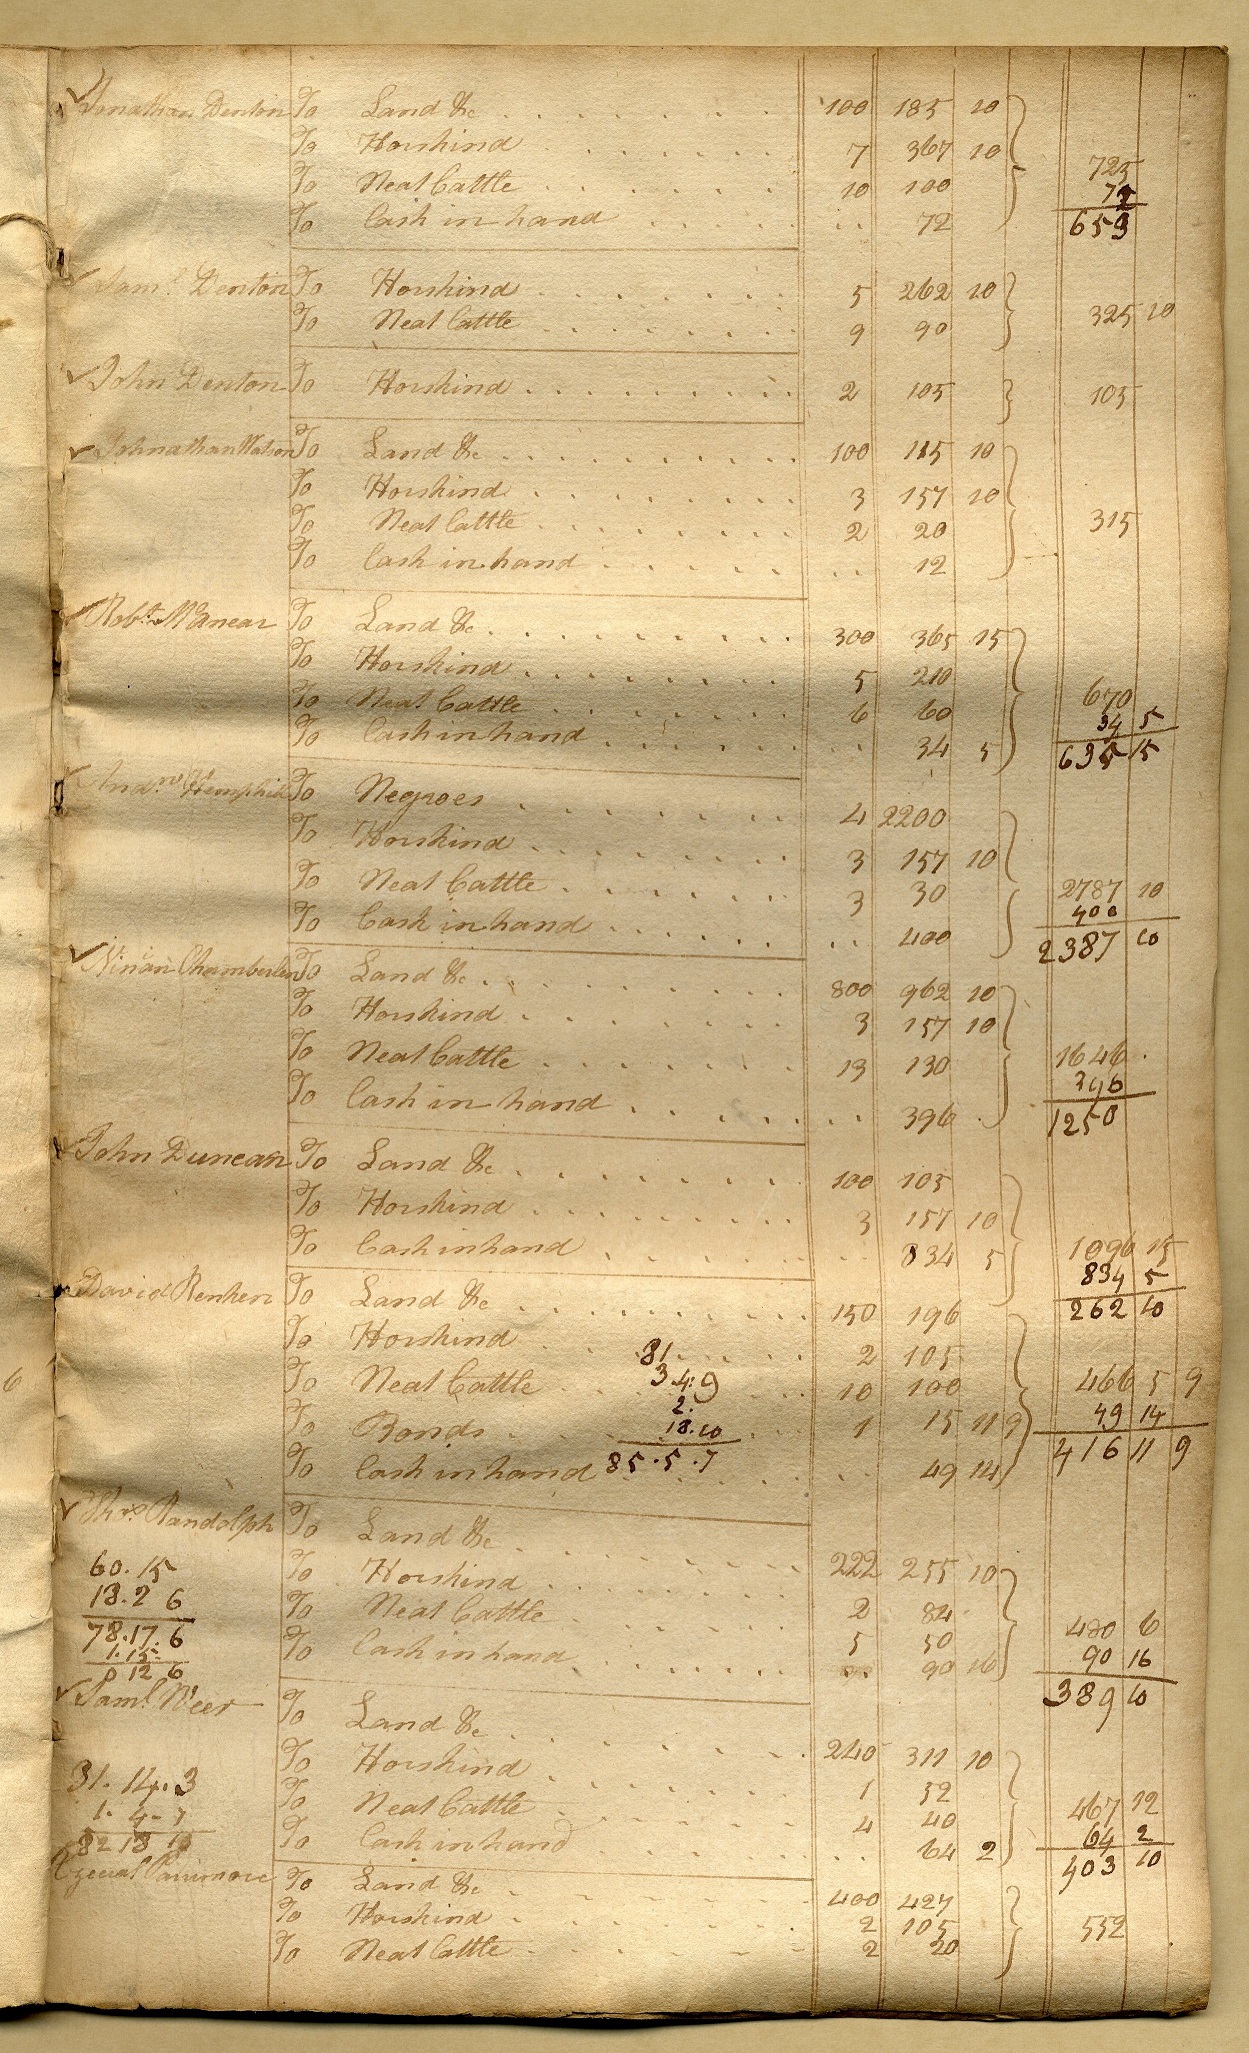 Jonathan Denton To Land &c 100 185 10
To Horskind 7 367 10
To Neat Cattle 10 100 725
To Cash in hand .. 72 72
653
Saml. Denton To Horskind 5 262 10
To Neat Cattle 9 90 325 10
John Denton To Horskind 2 105 105
Johnathan Watson To Land &c 100 115 10
To Horskind 3 157 10
To Neat Cattle 2 20 315
To Cash in hand .. 12
Robt. To Land &c 300 365 15
To Horskind 5 210
To Neat Cattle 6 60 670
To Cash in hand .. 34 5 34 5
635 15
Andrw. Hemphill To Negroes 4 2200
To Horskind 3 157 10
To Neat Cattle 3 30 2787 10
To Cash in hand .. 400 400
2387 10
Ninian Chamberlen To Land &c 800 962 10
To Horskind 3 157 10
To Neat Cattle 13 130 1646
To Cash in hand .. 396 396
1250
John Duncan To Land &c 100 105
To Horskind 3 157 10
To Cash in hand .. 834 5 1096 15
834 5
262 10
David Renken To Land &c 150 196
To Horskind 2 105
81
To Neat Cattle 10 100 466 5 9
3.4.9
2.
To Bonds 1 15 11 9 49 14
18.10
To Cash in hand .. 49 14 416 11 9
85.5.7
Thos. Randolph To Land &c 222 255 10
60.15
To Horskind 2 84
18.2 6
To Neat Cattle 5 50 480 6
78.17.6
To Cash in hand .. 90 16 90 16
1.15
0 12 6
389 10
Saml. To Land &c 240 311 10
To Horskind 1 52
31.14.3
To Neat Cattle 4 40 467 12
1.4.7
To Cash in hand .. 64 2 64 2
403 10
To Land &c 400 427
To Horskind 2 105
To Neat Cattle 2 20 552
6